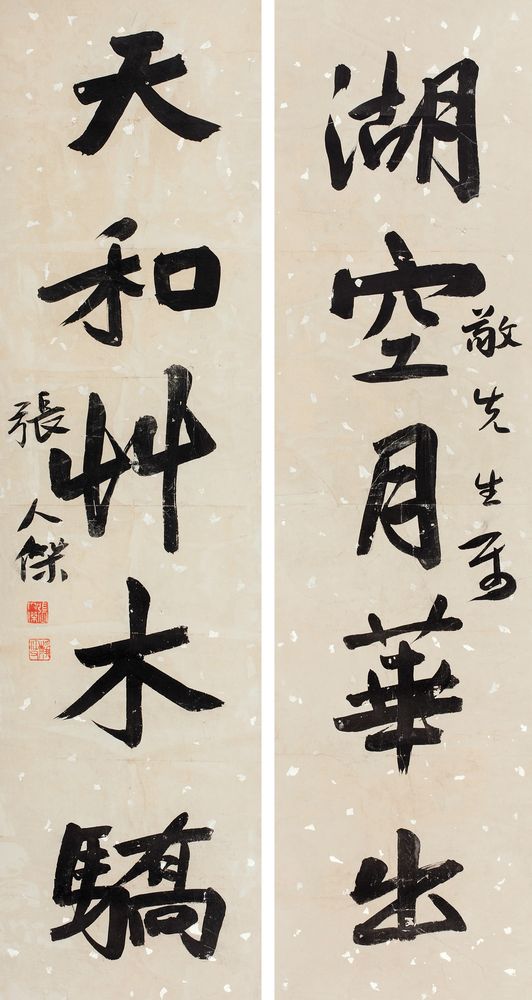 湖空月華出
敬先生属
天和艸木驕
張人傑